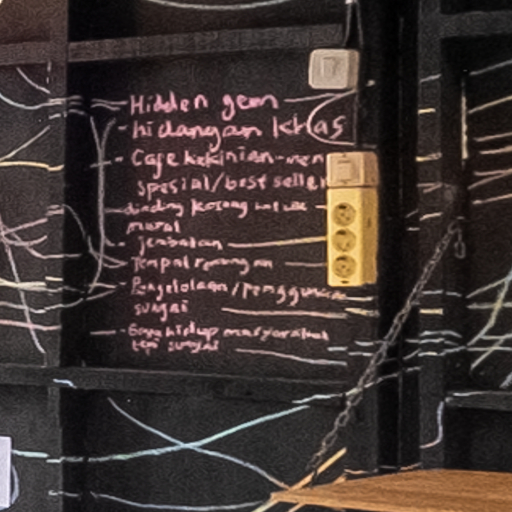 - Hidden gem
- hidangan khas
- Cafe kekinian - men
spesial / best seller
dinding kosong untuk
mural
- jembatan
- Tempat renungan
- Pengelolaan / penggunaan
sungai
- Gaya hidup masyarakat
tepi sungai